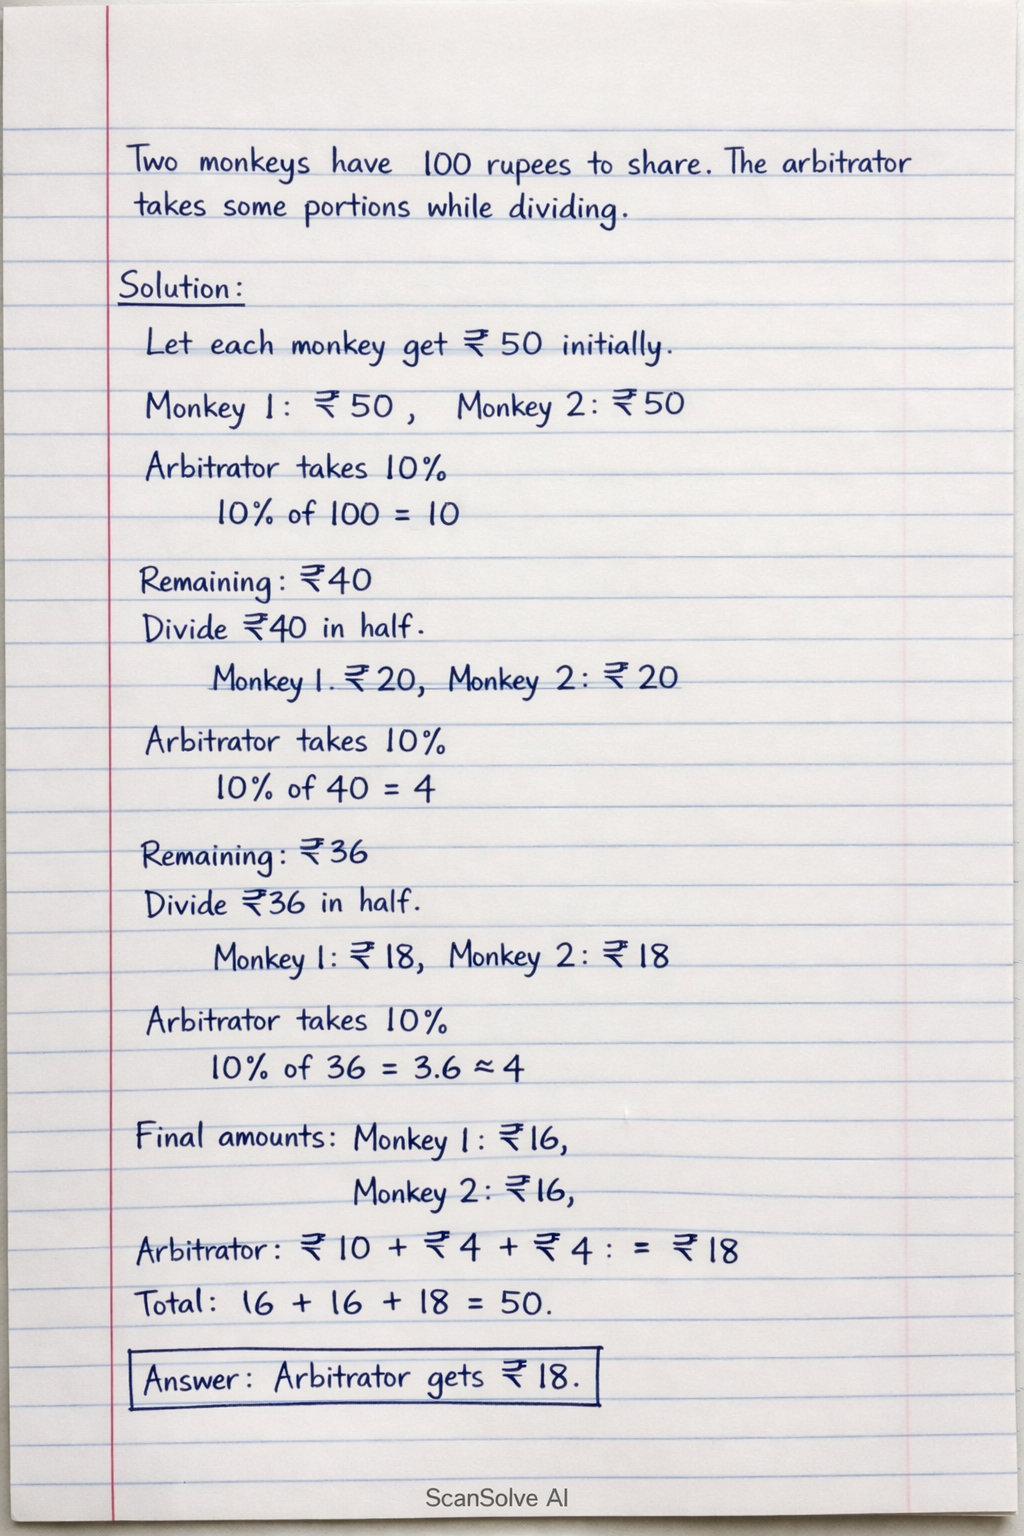 Two monkeys have 100 rupees to share. The arbitrator
takes some portions while dividing.
Solution:
Let each monkey get ₹ 50 initially.
Monkey 1: ₹ 50 , Monkey 2: ₹ 50
Arbitrator takes 10%
10% of 100 = 10
Remaining: ₹40
Divide ₹40 in half.
Monkey 1. ₹ 20, Monkey 2: ₹ 20
Arbitrator takes 10%
10% of 40 = 4
Remaining: ₹36
Divide ₹36 in half.
Monkey 1: ₹ 18, Monkey 2: ₹ 18
Arbitrator takes 10%
10% of 36 = 3.6 ≈ 4
Final amounts: Monkey 1: ₹16,
Monkey 2: ₹16,
Arbitrator: ₹ 10 + ₹ 4 + ₹ 4 : = ₹ 18
Total: 16 + 16 + 18 = 50.
Answer: Arbitrator gets ₹ 18.
ScanSolve AI